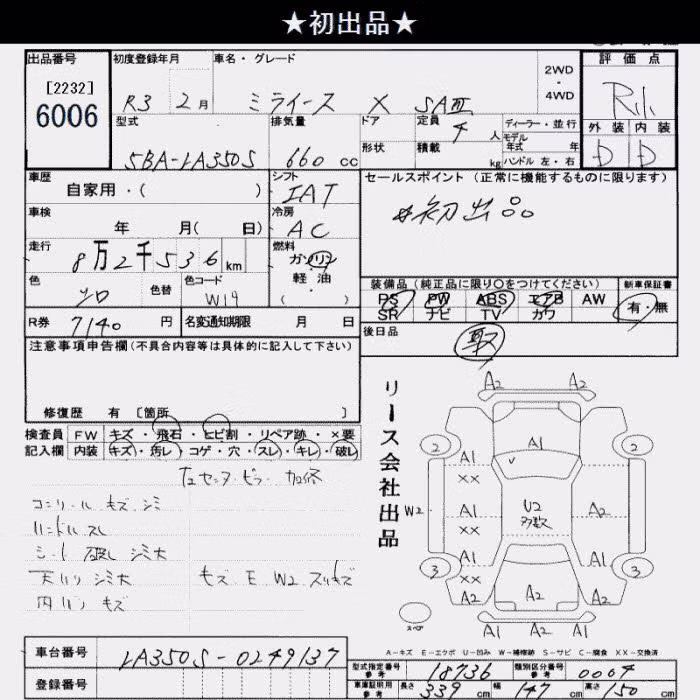 ★初出品★
出品番号 初度登録年月 車名・グレード 2WD・4WD 評価点
[2232]
6006
R3 2月 ミライース X SAⅢ
型式 排気量 ドア 定員 4人 ディーラー・並行 外装 内装
5BA-LA350S 660cc 形状 積載 kg モデル年式 年 ハンドル 左・右 D D
車歴 自家用・( ) シフト IAT セールスポイント (正常に機能するものに限ります)
車検 年 月( 日) 冷房 AC #初出品
走行 8万2千536km 燃料 ガソリン 軽油・( )
色 シロ 色替 色コード W19
装備品 (純正品に限り○をつけてください) 新車保証書
PS PW ABS エアB AW 有・無
SR ナビ TV カワ
R券 7140円 名変通知期限 月 日 後日品 取
注意事項申告欄 (不具合内容等は具体的に記入して下さい)
修復歴 有 [箇所 ]
検査員記入欄 FW キズ・飛石・ヒビ割・リペア跡・×要
内装 キズ・汚レ・コゲ・穴・スレ・キレ・破レ
コンソール キズ シミ
ハンドル スレ
シート 破レ シミ大
天バリ シミ大
内バリ キズ
キズ E W2 スリキズ
リース会社出品
A2 A2
2 A1 2
A1 XX
W2 A1 U2 多数 A2
XX
A1 A1
3 XX 3
A2 A2 A2
A2 A2
スペア
A-キズ E-エクボ U-凹み W-補修跡 S-サビ C-腐食 XX-交換済
車台番号 LA350S-0249137
登録番号
型式指定番号 参考 18736 類別区分番号 参考 0004
車庫証明用 参考 長さ 339cm 幅 147cm 高さ 150cm